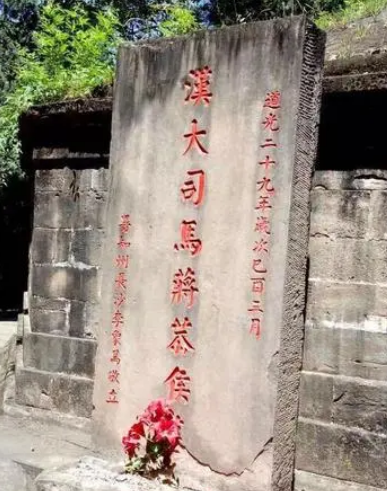 道光二十九年歲次己酉三月
漢大司馬蔣恭侯
知州長沙李崇爲敬立